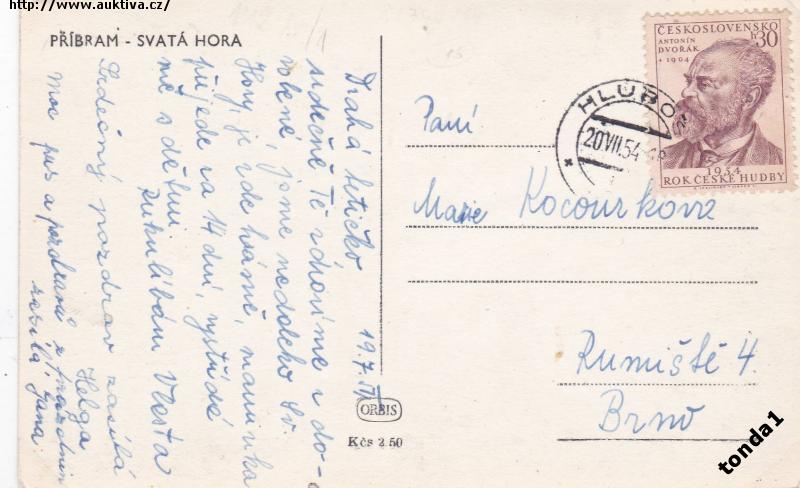 http://www.auktiva.cz/
PŘÍBRAM - SVATÁ HORA
Drahá tetičko 19.7.54
srdečně Tě zdravíme z do-
volené, jsme nedaleko Sv.
Hory, je zde krásně, maminka
přijede za 14 dní, vystřídá
mě s dětmi
Rukulíbám Vlasta
Srdečný pozdrav zasílá
Helga
Moc pus a pozdravů z prázdnin
zasílá Jana
ORBIS
Kčs 2.50
ČESKOSLOVENSKO
ANTONÍN
DVOŘÁK
h30
* 1904
1954
ROK ČESKÉ HUDBY
HLUBO
20.VII.54
Paní
Marie Kocourková
Rumiště 4
Brno
tonda1